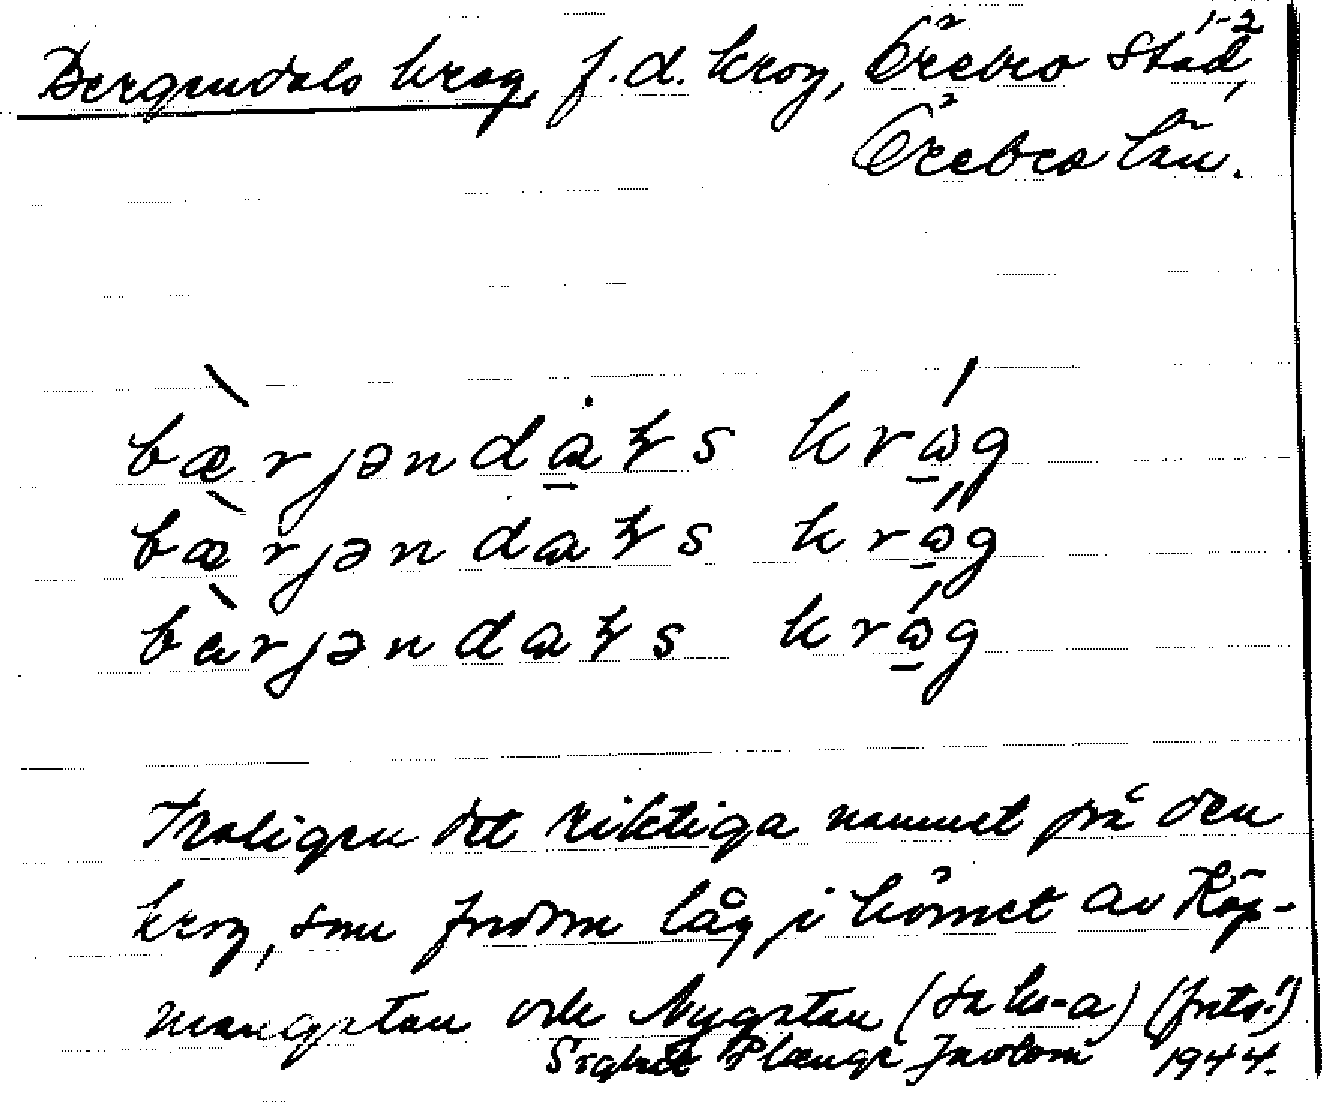 Bergendals krog, f.d. krog, Örebro stad, 1-2
Örebro län.
bæ̀rjəndals kråg
bæ̀rjəndals kråg
bàrjəndals kråg
Troligen det riktiga namnet på den
krog, som fordom låg i hörnet av Köp-
mangatan och Nygatan (se ko-a) (foto!)
1944.